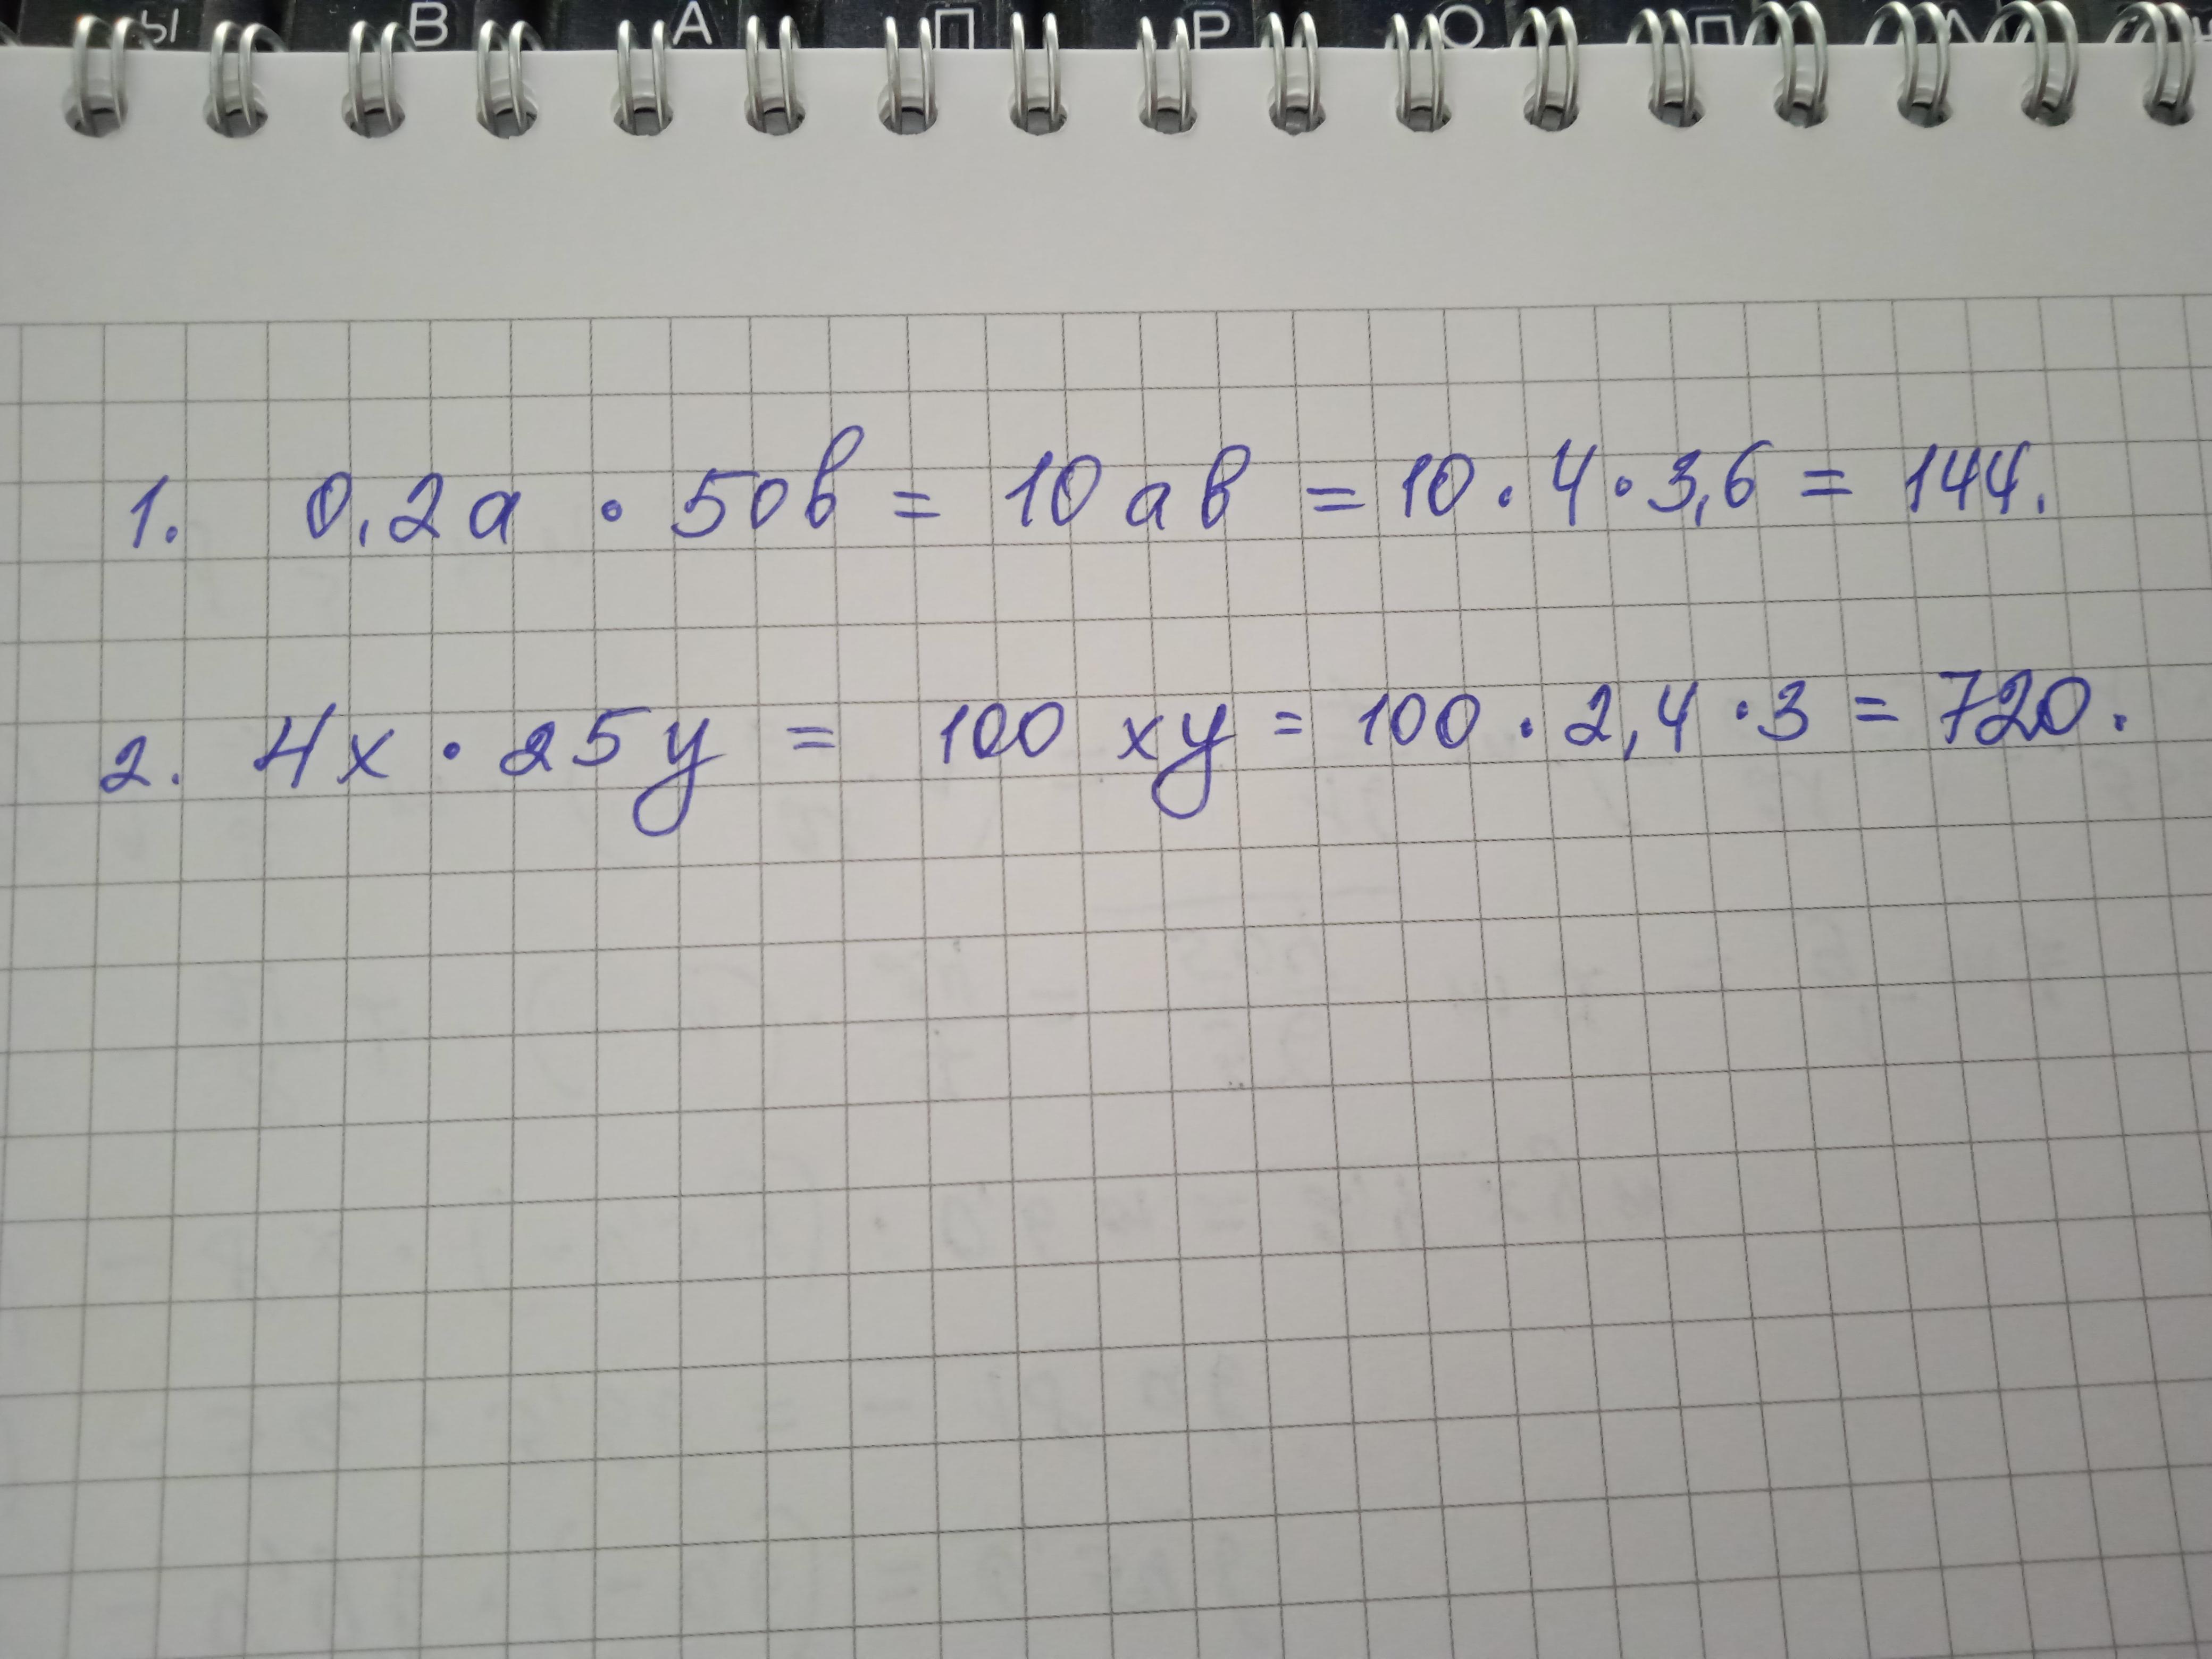 Ы В А П Р О
1. 0,2а · 50в = 10 ав = 10 · 4 · 3,6 = 144.
2. 4х · 25у = 100 ху = 100 · 2,4 · 3 = 720.